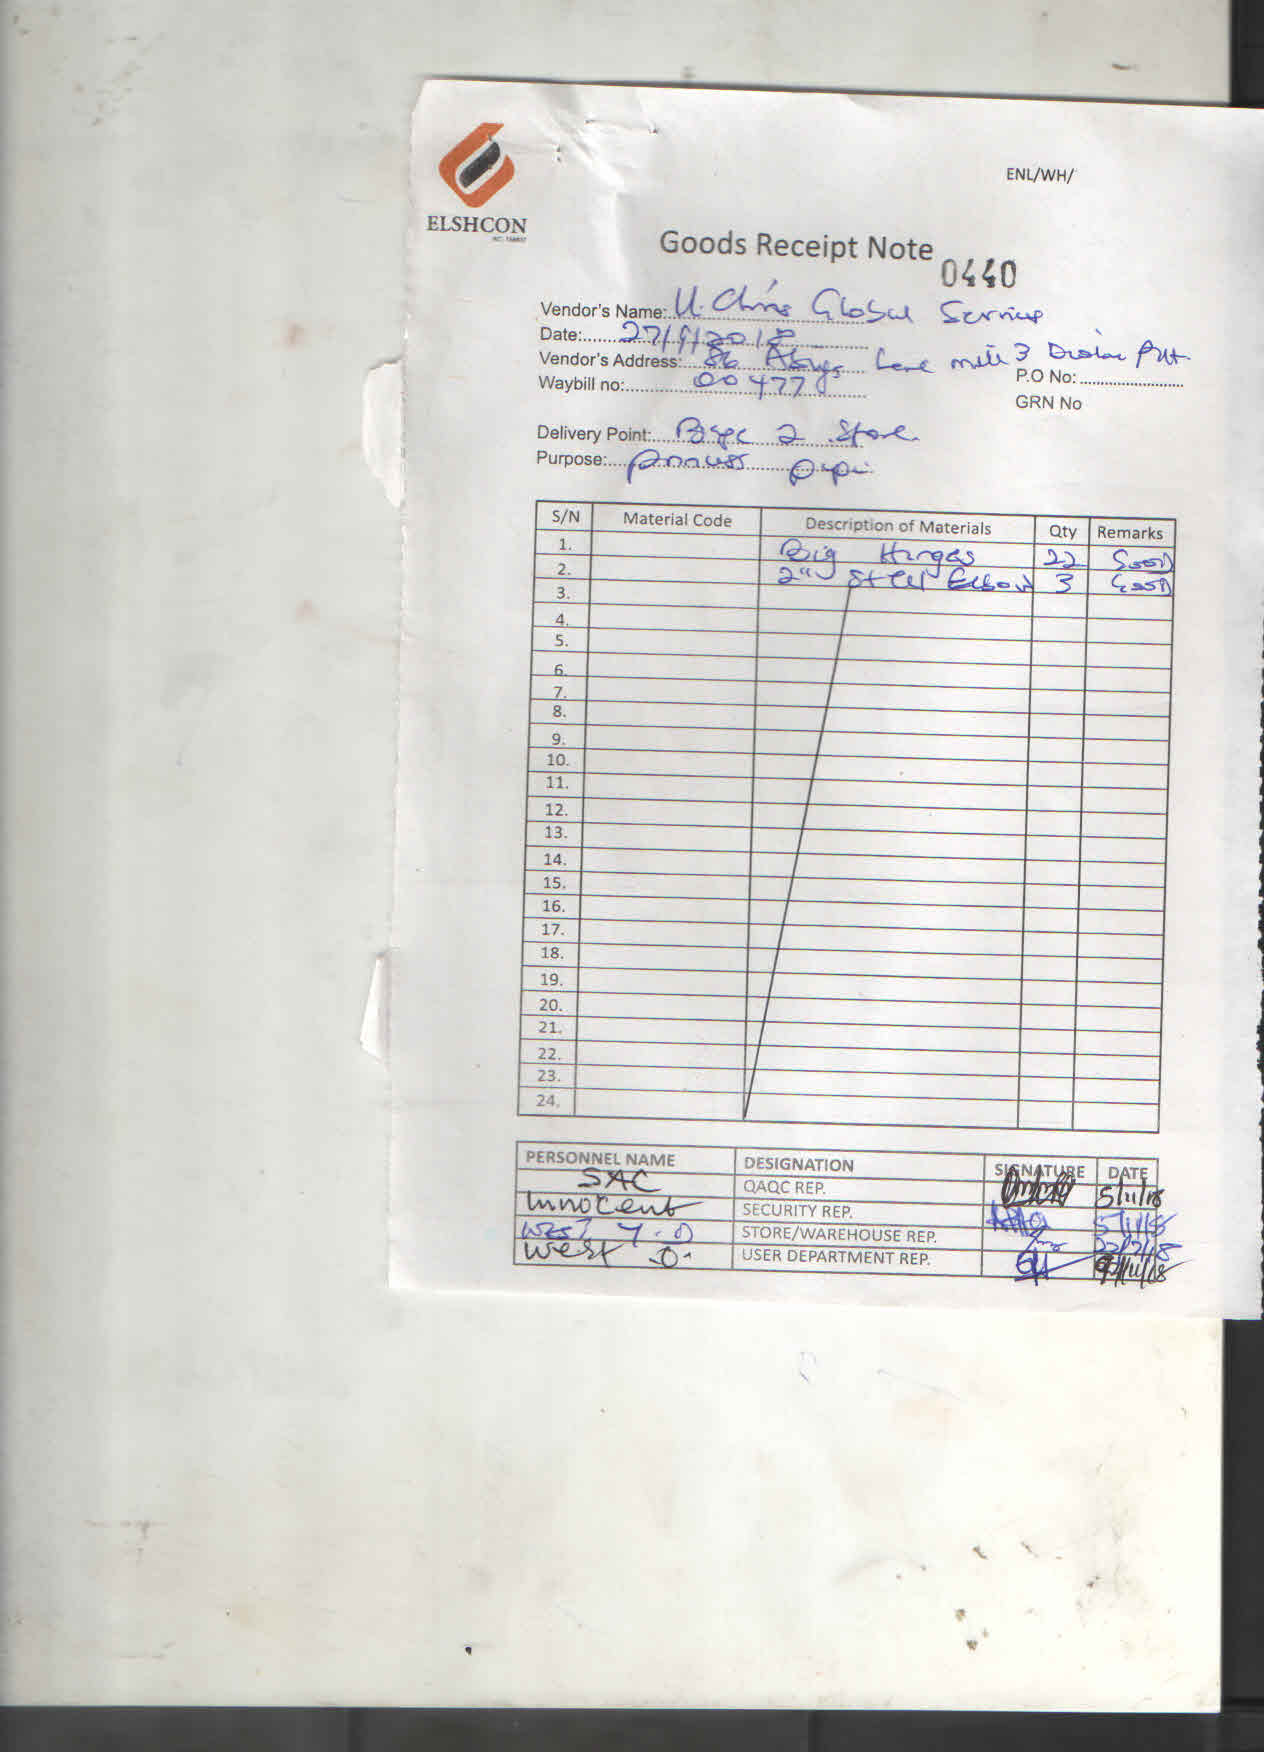 ENL/WH/
ELSHCON
Goods Receipt Note 0440
Vendor's Name: U. Chris Global Services
Date: 27/9/2018
Vendor's Address: 86 Lane mile 3 Diobu PH
Waybill no: 00477
P.O No:
GRN No
Delivery Point: Base 2 Store
Purpose:
S/N Material Code Description of Materials Qty Remarks
1. Big Hinges 22 Good
2. 2" Steel Elbow 3 Good
3.
4.
5.
6.
7.
8.
9.
10.
11.
12.
13.
14.
15.
16.
17.
18.
19.
20.
21.
22.
23.
24.
PERSONNEL NAME DESIGNATION SIGNATURE DATE
SAC QAQC REP. 5/11/18
Innocent SECURITY REP. 5/11/18
West Y. O STORE/WAREHOUSE REP.
West .O. USER DEPARTMENT REP.